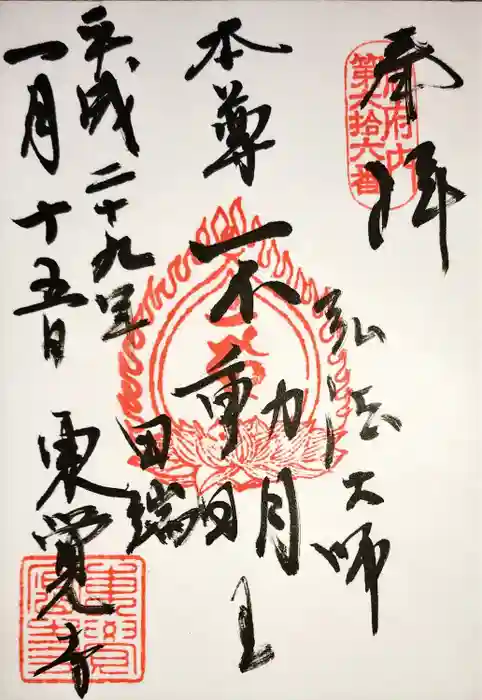 奉拝
御府内
第六拾六番
弘法大師
本尊 不動明王
田端
平成二十九年
一月十五日
東覚寺